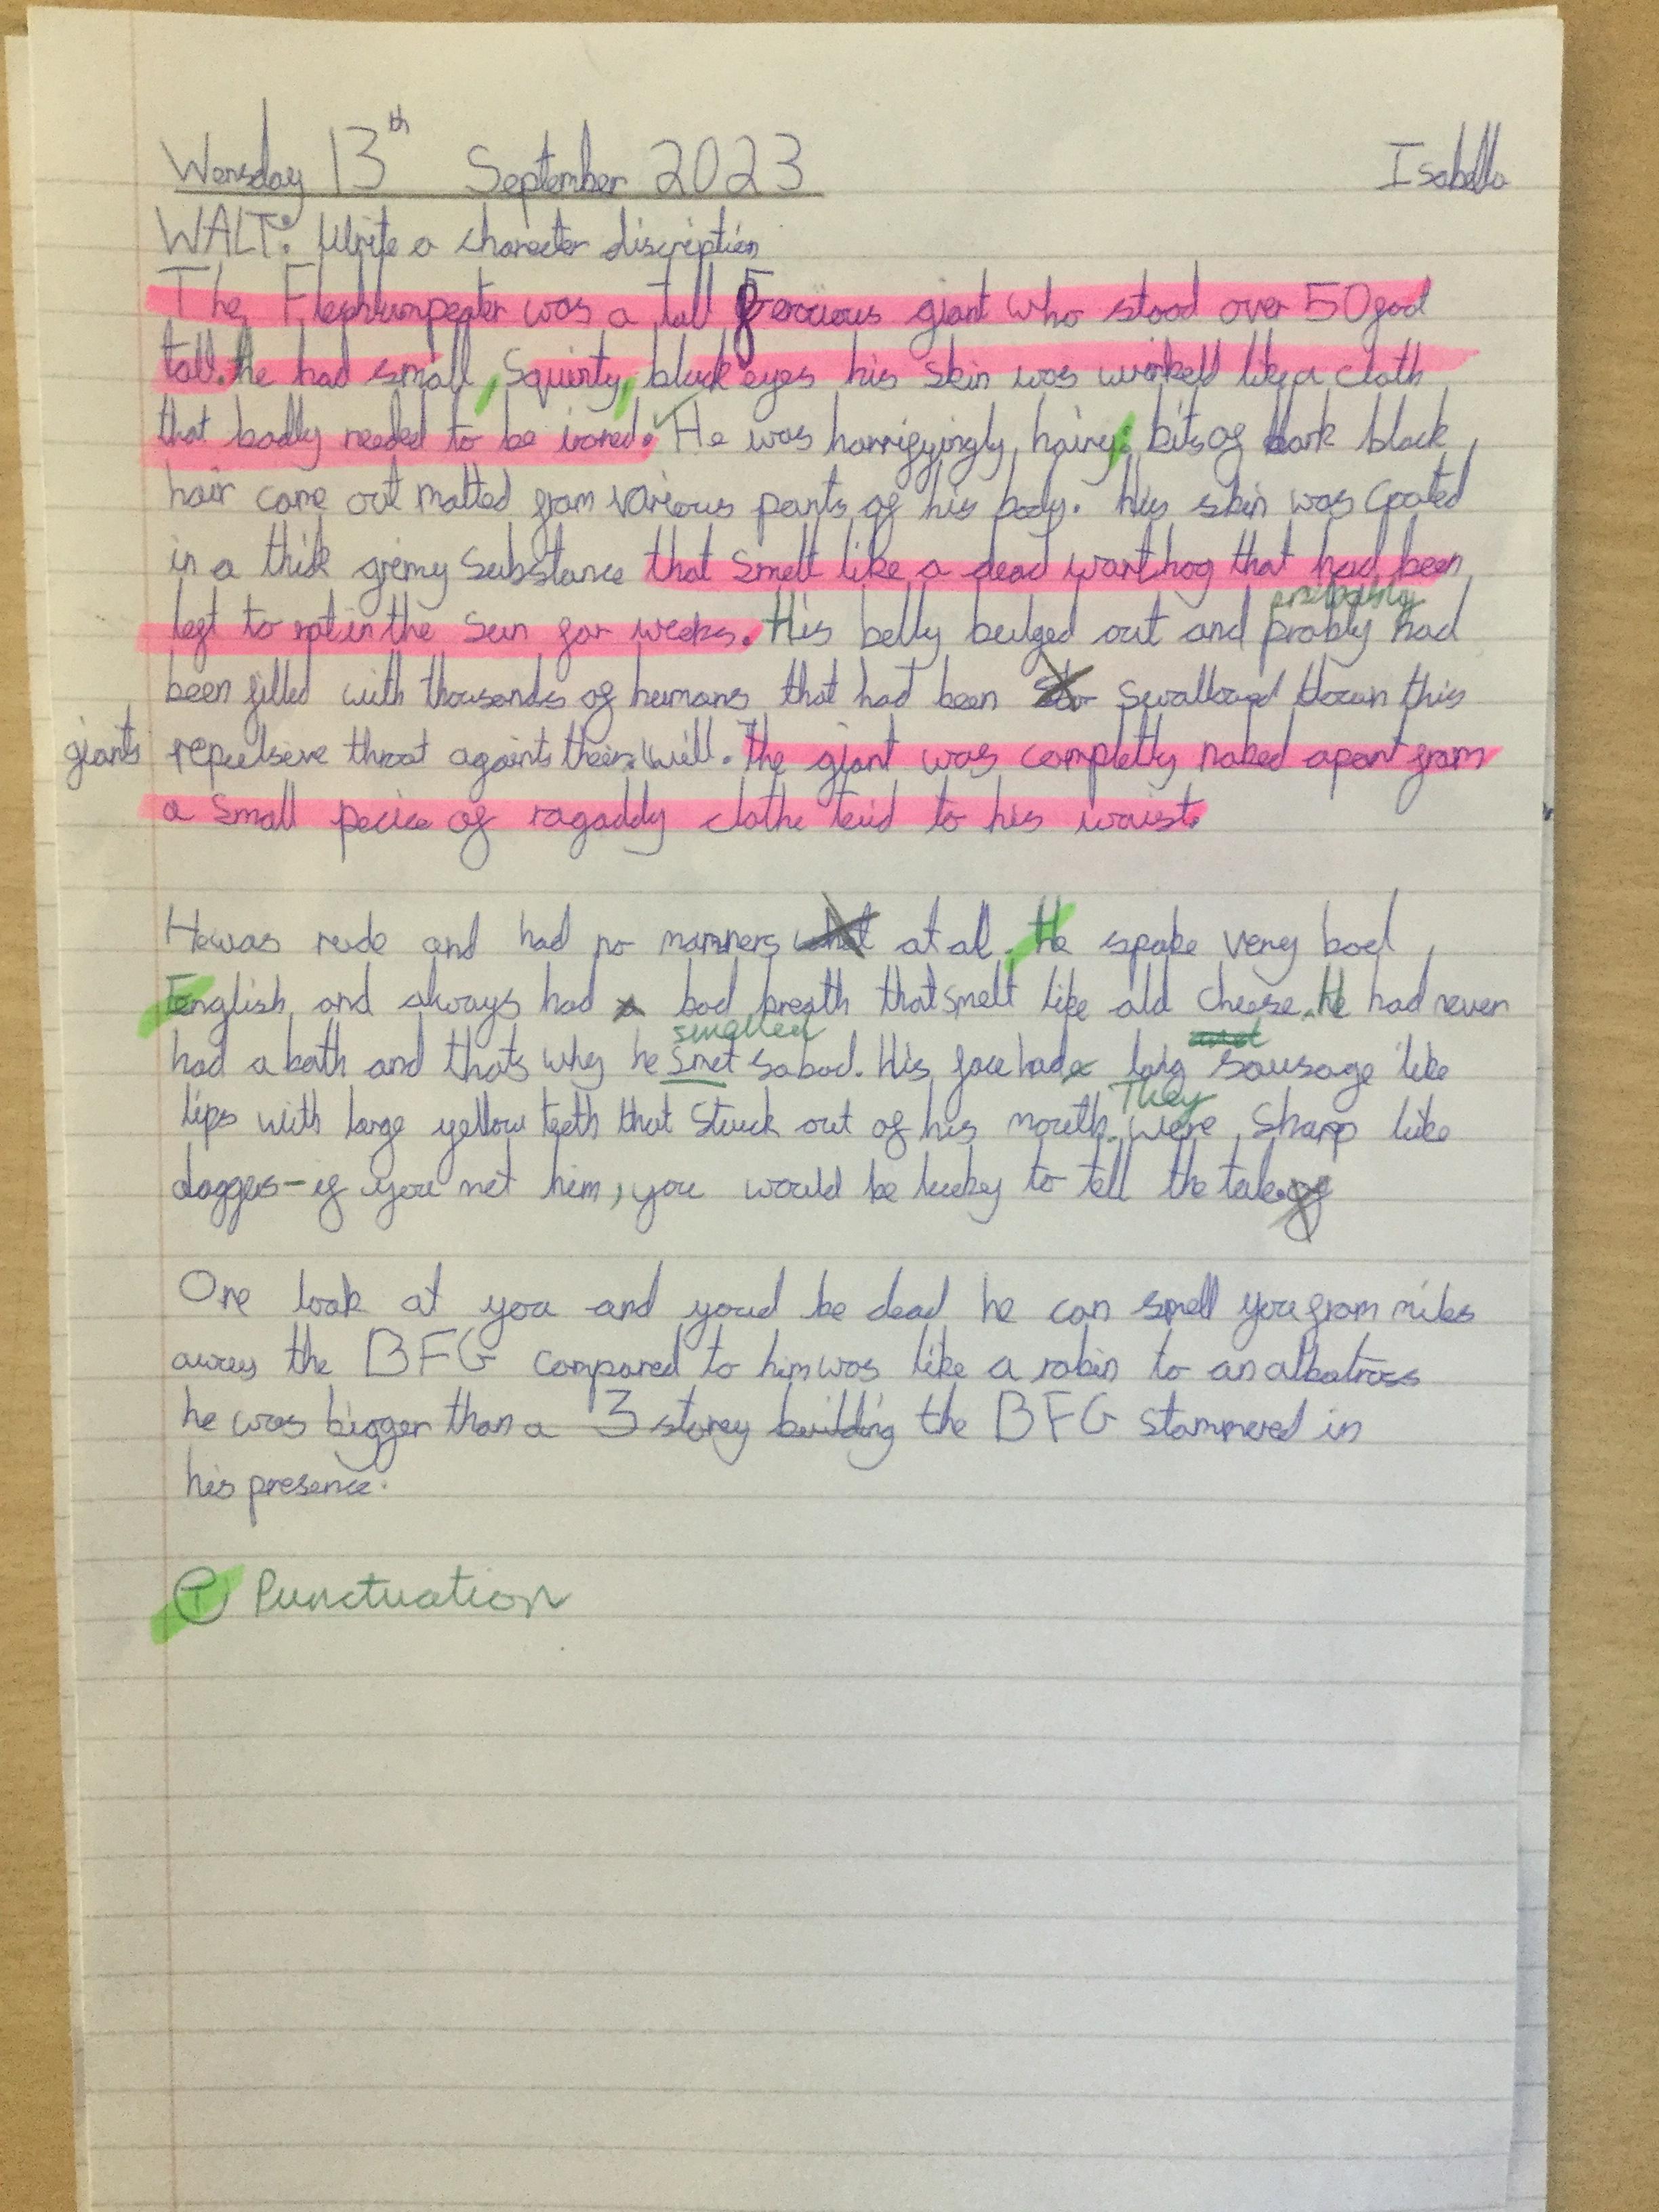 Wensday 13th September 2023 Isabella
WALT: Write a character discription
The Fleshlumpeater was a tall ferocious giant who stood over 50 foot
tall. He had small, squinty, black eyes his skin was wrinkell like a cloth
that badly needed to be ironed. He was horrifyingly hairy; bits of dark black
hair came out matted from various parts of his body. His skin was coated
in a thick gremy substance that smelt like a dead warthog that had been
probably
left to rot in the sun for weeks. His belly bulged out and probly had
been filled with thousands of humans that had been swallowed down this
giants repulsive throat againts their will. The giant was completly naked apart from
a small pecice of ragaddy clothe teid to his waist.
He was rude and had no manners at al. He spoke very bad
English and always had bad breath that smelt like old cheese. He had never
smelled
had a bath and thats why he smet so bad. His face had long sausage like
They
lips with large yellow teeth that stuck out of his mouth. were sharp like
daggus - if you met him, you would be lucky to tell the tale
One look at you and youd be dead he can smell you from miles
away the BFG compared to him was like a robin to an albatross
he was bigger than a 3 storey building the BFG stammered in
his presence.
T Punctuation